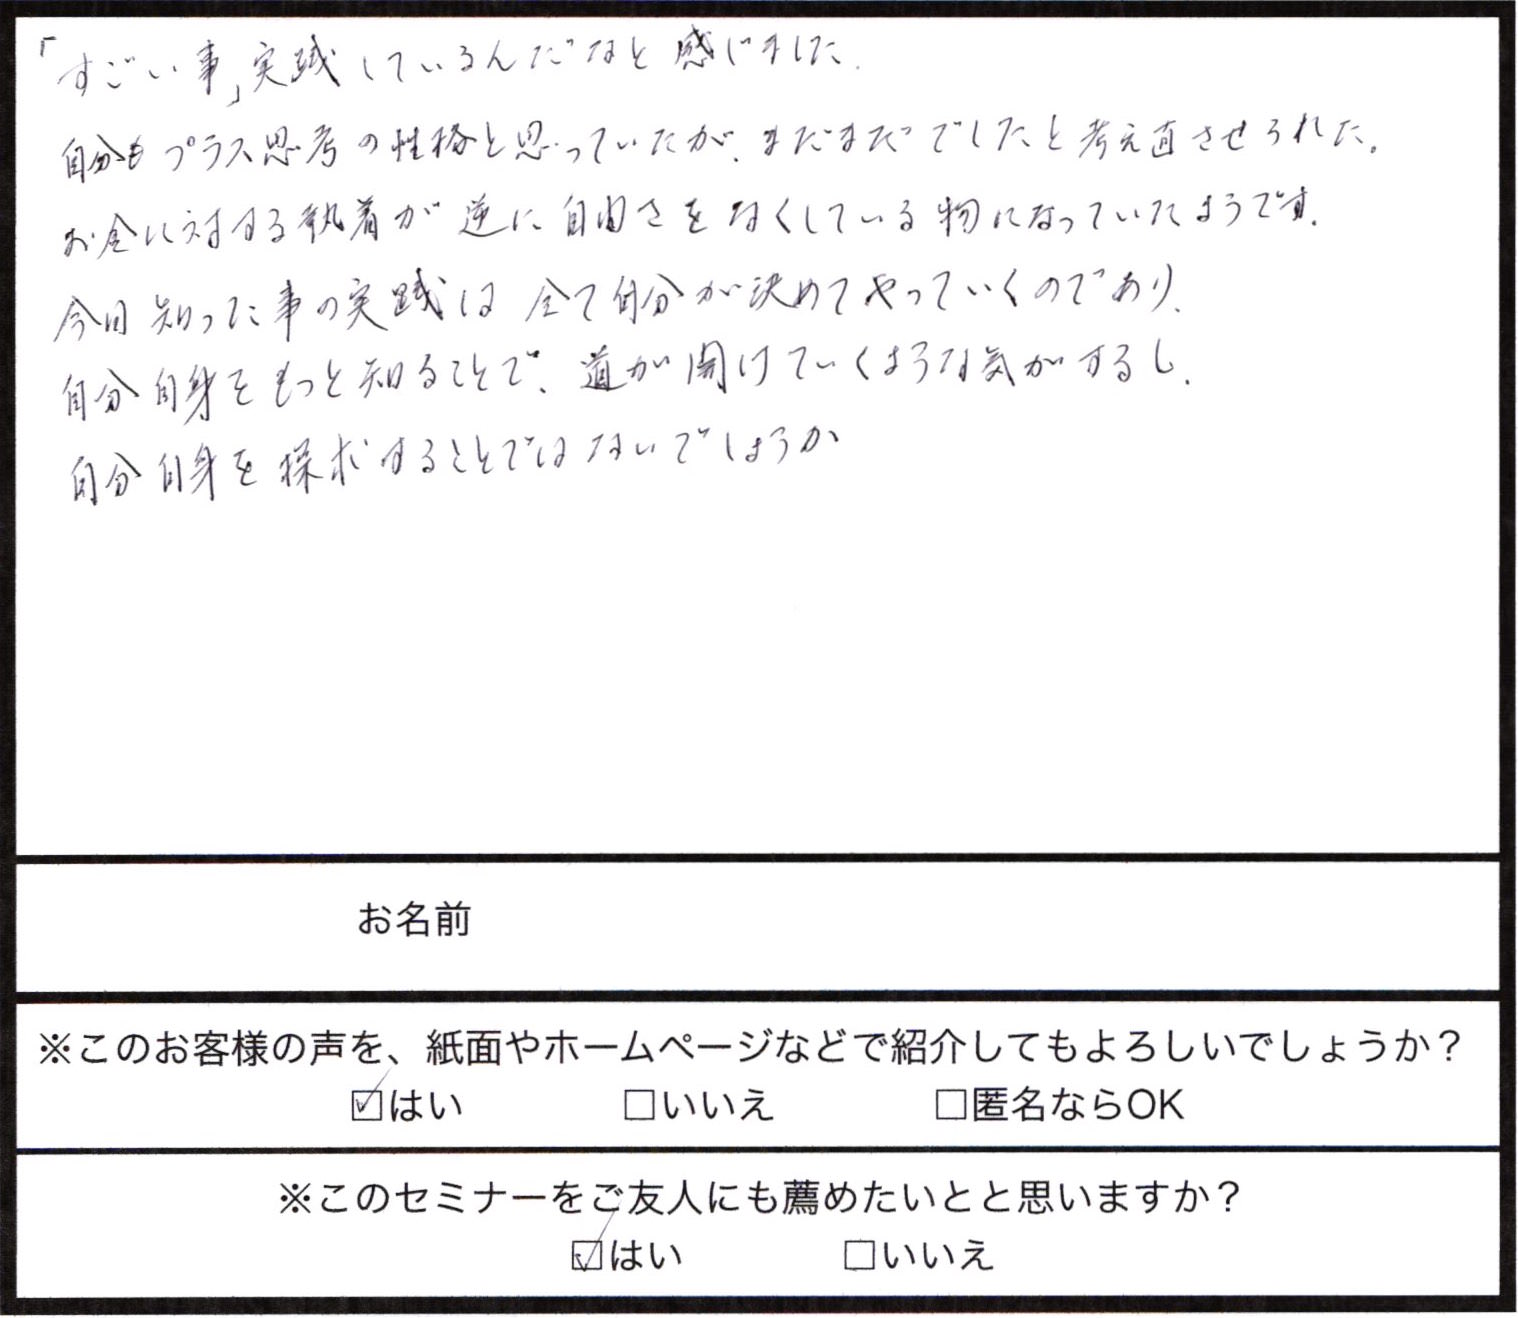 「すごい事」実践しているんだなと感じました.
自分もプラス思考の性格と思っていたが、まだまだでしたと考え直させられた。
お金に対する執着が逆に自由さをなくしている物になっていたようです.
今日知った事の実践は全て自分が決めてやっていくのであり、
自分自身をもっと知ることで、道が開けていくような気がするし、
自分自身を探求することではないでしょうか
お名前
※このお客様の声を、紙面やホームページなどで紹介してもよろしいでしょうか？
☑はい □いいえ □匿名ならOK
※このセミナーをご友人にも薦めたいとと思いますか？
☑はい □いいえ